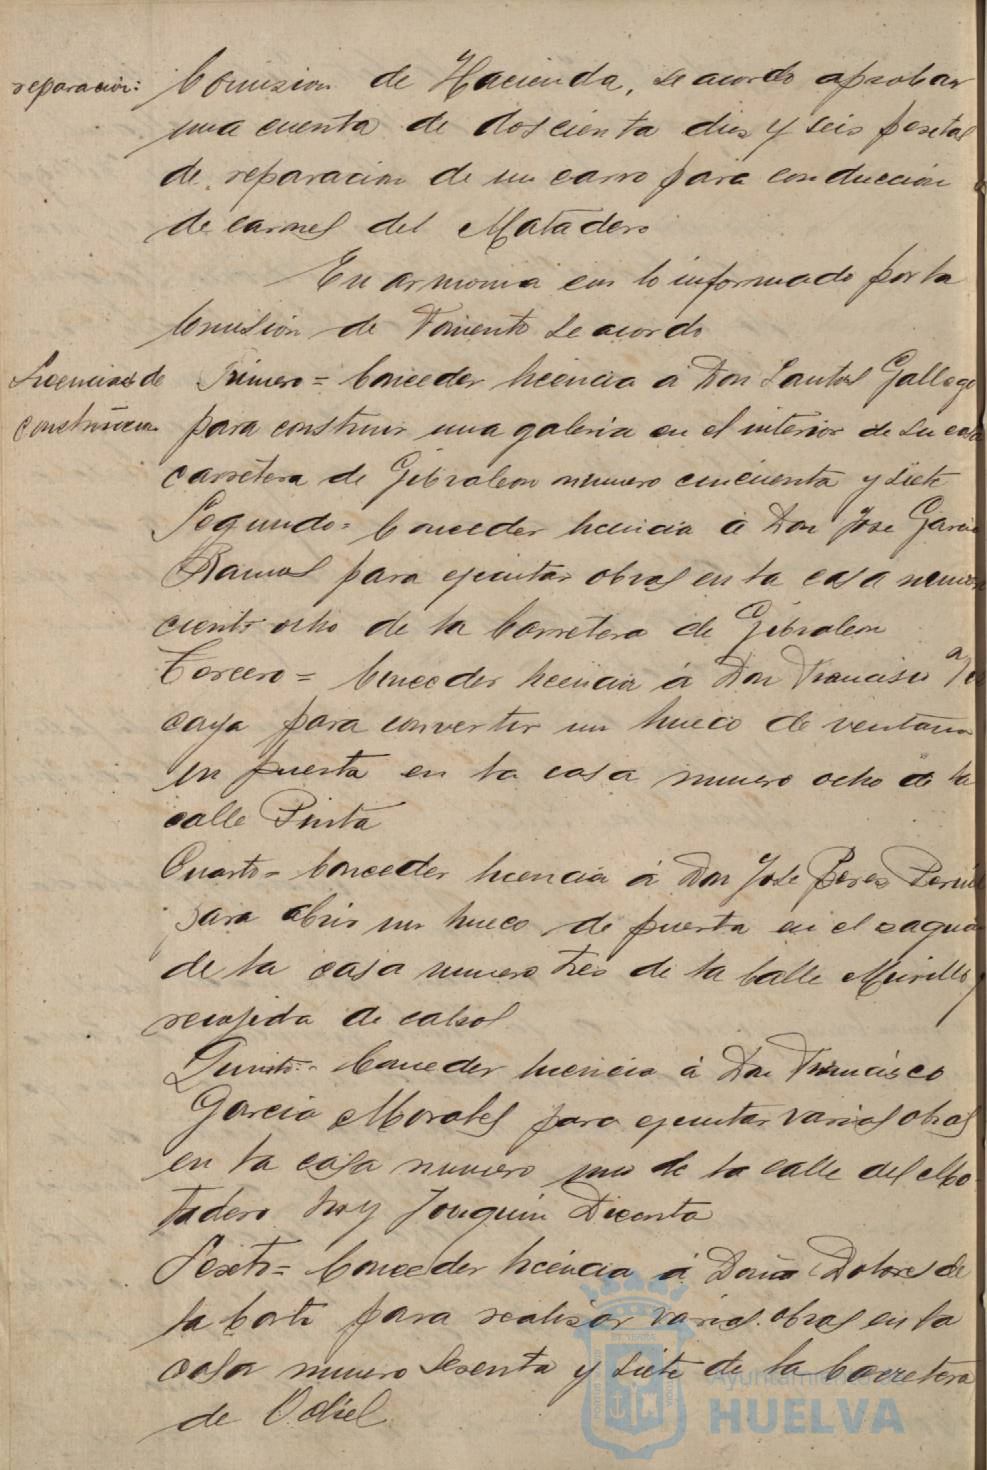 reparacion: Comision de Hacienda, se acordo aprobar
una cuenta de doscienta dies y seis pesetas
de reparacion de un carro para conduccion
de carnes del Matadero
En armonia con lo informado por la
Comision de Fomento se acordo
Licencias de Primero = Conceder licencia á Don Santos Gallego
construccion para construir una galeria en el interior de su casa
carretera de Gibraleon numero cincuenta y siete
Segundo = Conceder licencia á Don Jose Garcia
Ramos para ejecutar obras en la casa numero
ciento ocho de la Carretera de Gibraleon
Tercero = Conceder licencia á Don Francisco
caya para convertir un hueco de ventana
en puerta en la casa numero ocho de la
calle Pinta
Cuarto = Conceder licencia á Don Jose Peres
para abrir un hueco de puerta en el zaguan
de la casa numero tres de la Calle Murillo
recojida de calsol
Quinto = Conceder licencia á Don Francisco
Garcia Morales para ejecutar varias obras
en la casa numero uno de la calle del Mo-
tadero hoy Joaquin Dicenta
Sexto = Conceder licencia á Doña Dolores de
la Corte para realisar varias obras en la
casa numero sesenta y siete de la Carretera
de Odiel
Ayuntamiento de
HUELVA